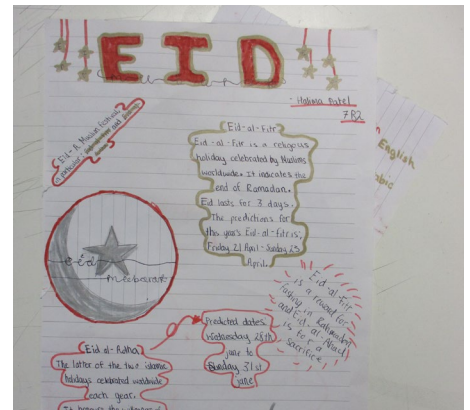 EID
- Halima Patel
7R2
Eid- A Muslim festival,
in particular
Eid-al-Fitr
Eid-al-Fitr is a religious
holiday celebrated by Muslims
worldwide. It indicates the
end of Ramadan.
Eid lasts for 3 days.
The predictions for
this years Eid-al-fitr is;
Friday 21 April - Sunday 23
April.
English
abic
eid
mubarak
Eid-al-Fitr
is a reward for
fasting in
and Eid-al-
is for a
sacrifice
Predicted dates:
Wednesday 28th
june to
31st
june
Eid al-
The latter of the two islamic
holidays celebrated worldwide
each year.